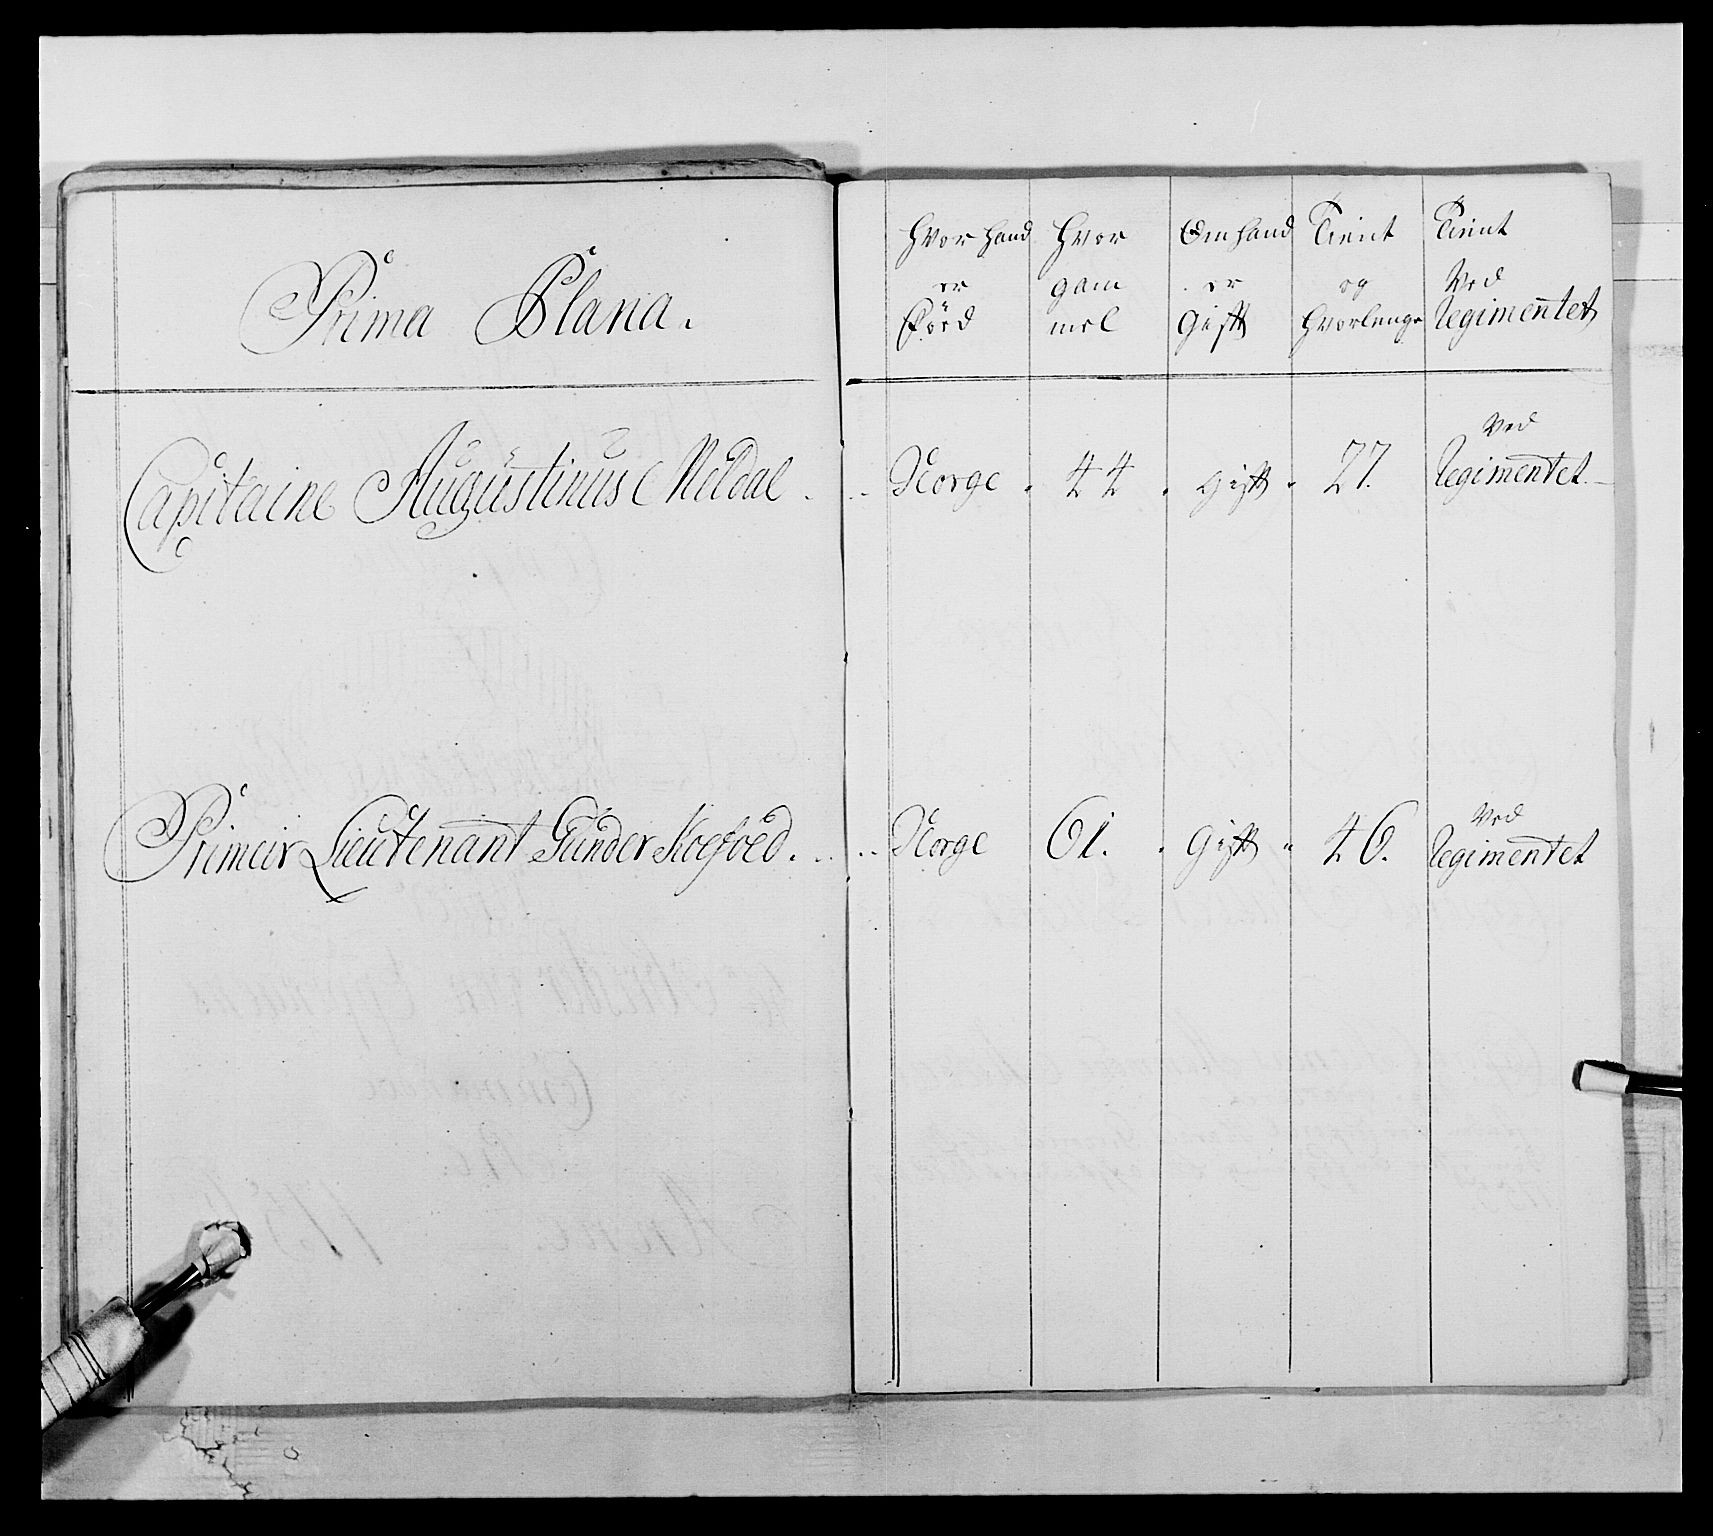 Prima Plana.
Hvor Hand er Föed
Hvor gammel
Om hand er Gift
Tient og Hvorlenge
Tient Ved Regimentet
Capitaine Augustinus Meldal . . . Norge . 44 . gift . 27. Ved Regimentet.
Primeir Lieutenant Gunder Koefoed . . . . Norge 61. . Gift . 46. Ved Regimentet